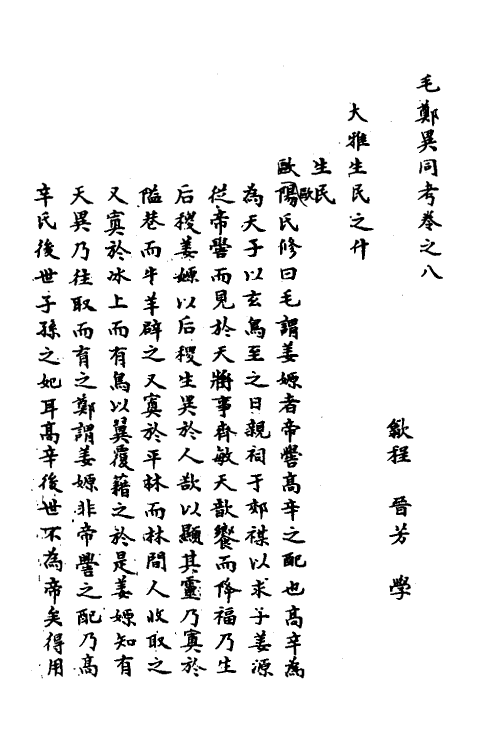 毛鄭異同考卷之八
歙程　晉芳　學
大雅生民之什
生民
歐陽氏修曰毛謂姜嫄者帝嚳高辛之配也高辛為
為天子以玄鳥至之日親祠于郊禖以求子姜源
從帝嚳而見於天將事齊敏天歆饗而降福乃生
后稷姜嫄以后稷生異於人欲以顯其靈乃寘於
隘巷而牛羊辟之又寘於平林而林間人收取之
又寘於冰上而有鳥以翼覆藉之於是姜嫄知有
天異乃往取而有之鄭謂姜嫄非帝嚳之配乃高
辛氏後世子孫之妃耳高辛後世不為帝矣得用